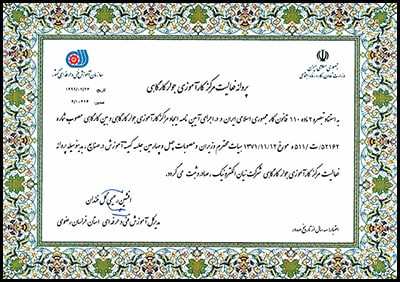 جمهوری اسلامی ایران
وزارت تعاون، کار و رفاه اجتماعی
سازمان آموزش فنی و حرفه ای کشور
تاریخ
شماره
پروانه فعالیت مرکز کارآموزی جوار کارگاهی
به استناد تبصره ۲ ماده ۱۱۰ قانون کار جمهوری اسلامی ایران و در اجرای آیین نامه ایجاد مراکز کارآموزی جوار کارگاهی و بین کارگاهی مصوب شماره
۵۲۱۶۲/ت۵۱۱ه مورخ ۱۳۷۱/۱۱/۱۲ هیات محترم وزیران و مصوبات چهل و چهارمین جلسه کمیته آموزش در صنایع، بدینوسیله پروانه
فعالیت مرکز کارآموزی جوار کارگاهی شرکت نیان الکترونیک، صادر و ثبت می گردد.
افشین رحیمی گل خندان
مدیرکل آموزش فنی و حرفه ای استان خراسان رضوی
اعتبار: سه سال از تاریخ صدور